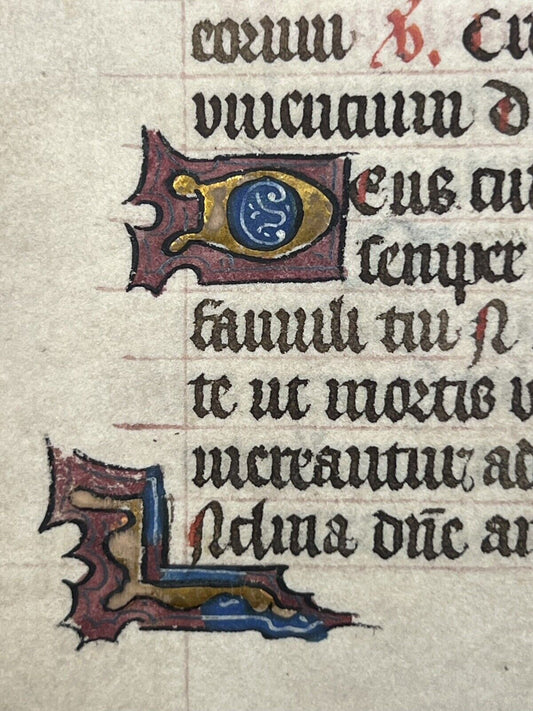 eorum
viventium d
DEus cu
semper
famuli tui N
te ut mortis v
mereantur ad
INclina dñe au